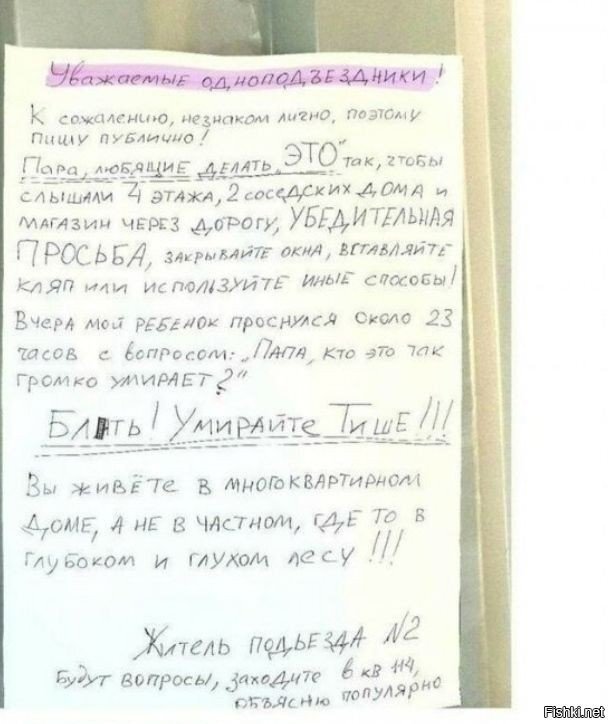 Уважаемые одноподъездники!
К сожалению, незнаком лично, поэтому
пишу публично!
Пара, любящие делать „ЭТО" так, чтобы
слышали 4 этажа, 2 соседских дома и
магазин через дорогу, УБЕДИТЕЛЬНАЯ
ПРОСЬБА, закрывайте окна, вставляйте
кляп или используйте иные способы!
Вчера мой ребенок проснулся около 23
часов с вопросом: „Папа, кто это так
громко умирает?"
Бл ть! Умирайте Тише!!!
Вы живёте в многоквартирном
доме, а не в частном, где то в
глубоком и глухом лесу!!!
Житель подьезда №2
Будут вопросы, заходите в кв 114,
объясню популярно
Fishki.net